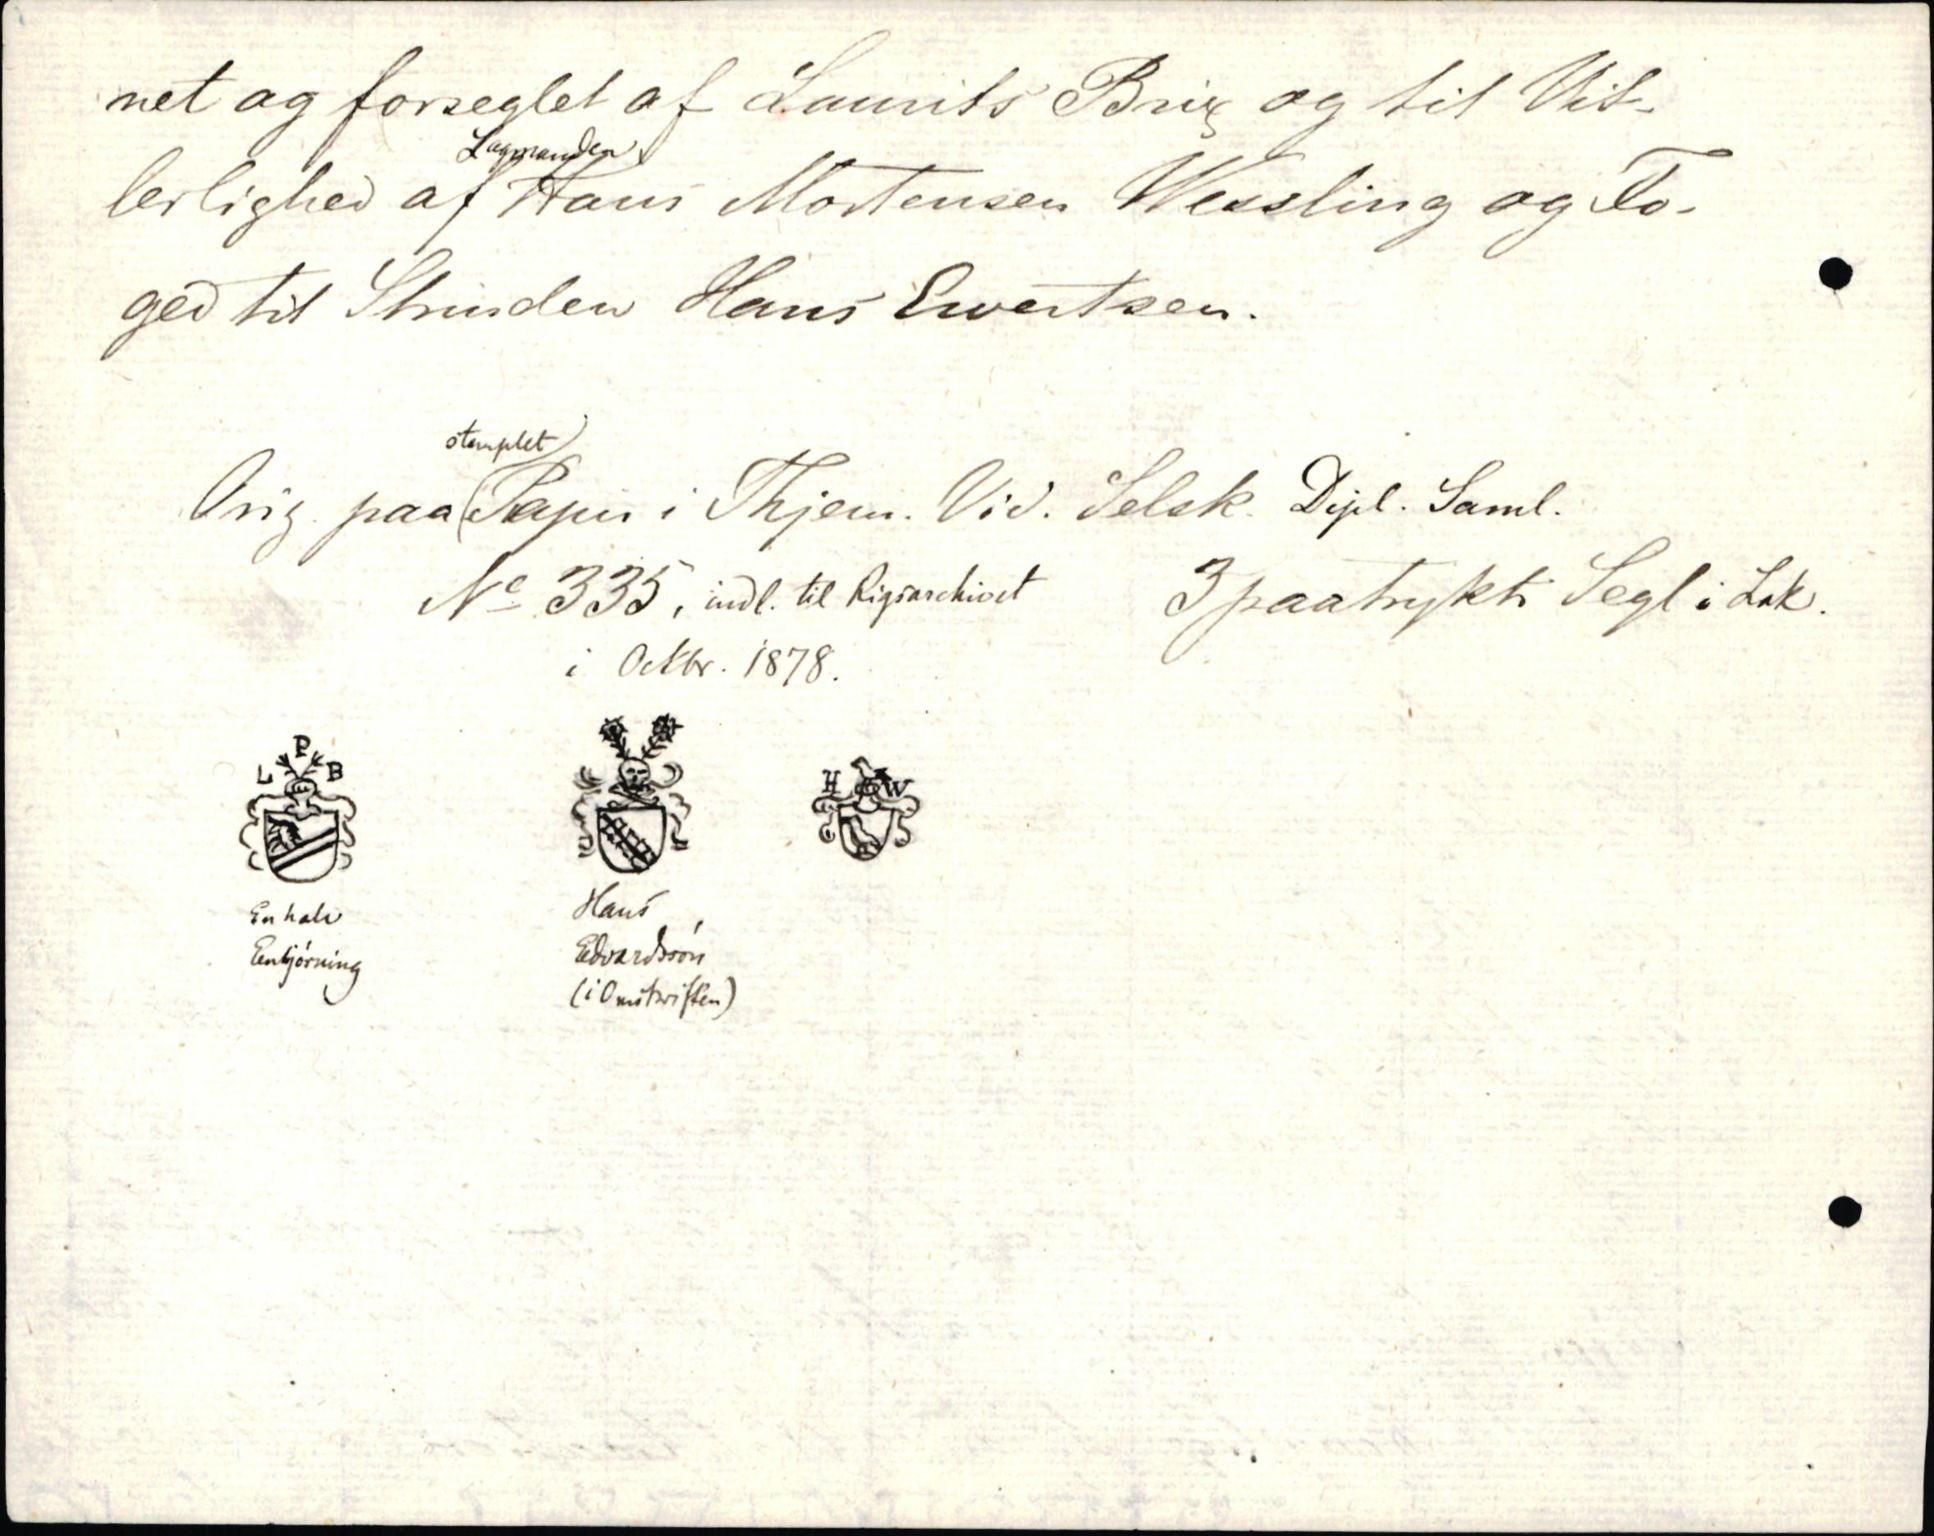 net og forseglet af Laurits Brix og til Vit-
Lagmanden
lerlighed af Hans Mortensen Wessling og Fo-
ged til Strinden Hans Evertsen.
stemplet
Orig. paa Papir i Thjem. Vid. Selsk. Dipl. Saml.
No 335, indl. til Rigsarchivet 3 paatrykte Segl i Lak.
i Octbr. 1878.
L P B
H W
En halv
Enhjørning
Hans
Edvardssøn
(i Omskriften)